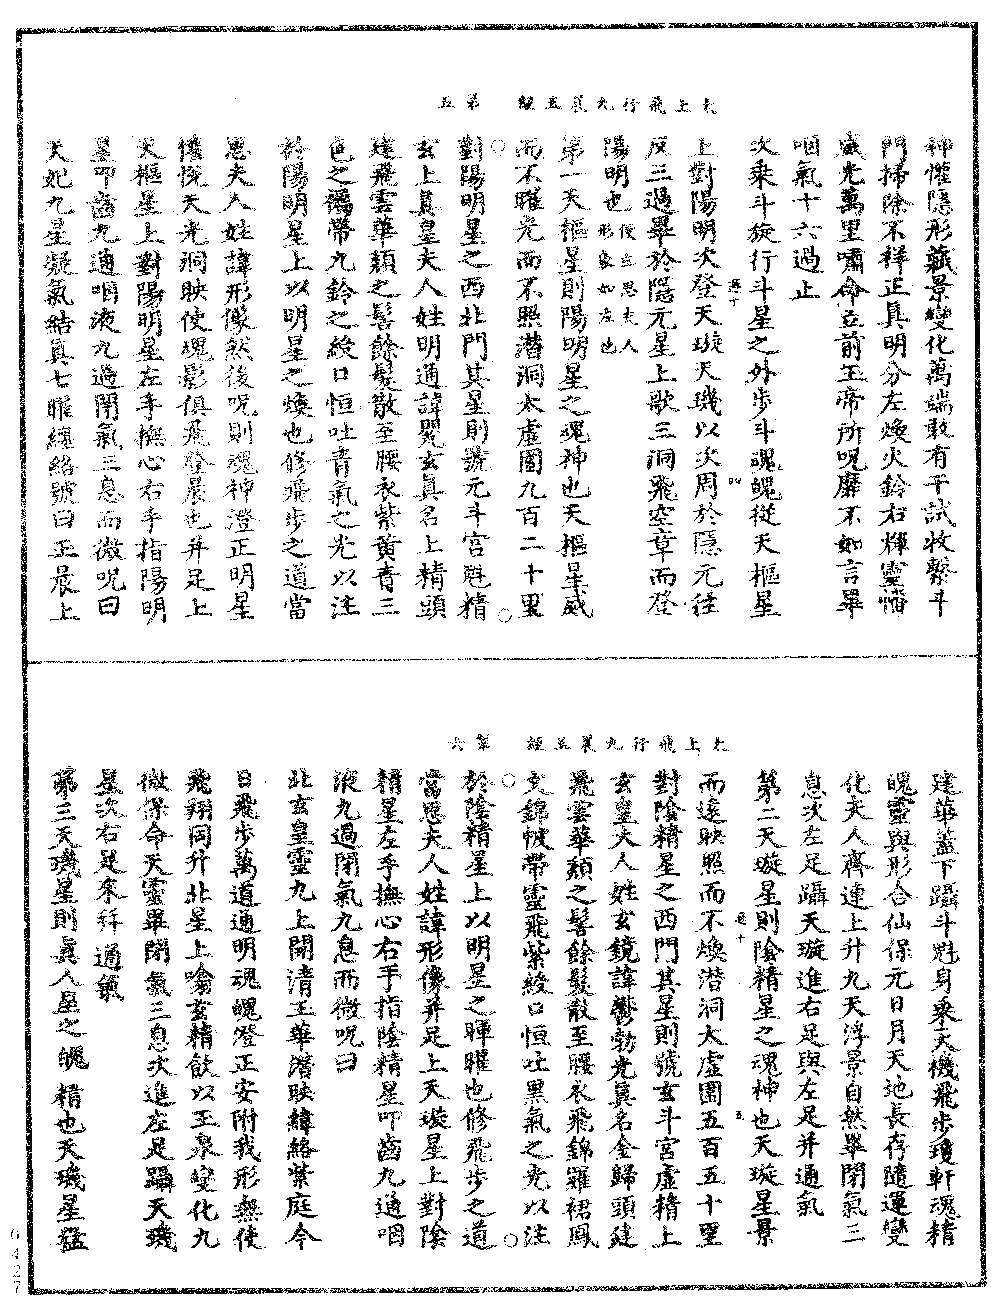 太上飛行九晨玉經　第五
神懽隱形藏景變化萬端敢有干試收繫斗
門掃除不祥正真明分左煥火鈴右輝靈幡
威光萬里嘯命立前玉帝所呪靡不如言畢
咽氣十六過止
次乘斗旋行斗星之外步斗魂魄從天樞星
上對陽明次登天璇天璣以次周於隱元往
反三過畢於隱元星上歌三洞飛空章而登
陽明也便立思夫人形象如左也
第一天樞星則陽明星之魂神也天樞星威
而不曜光而不照潜洞太虛圍九百二十里
對陽明星之西北門其星則號元斗宮魁精
玄上真皇夫人姓明通諱閟玄真名上精頭
建飛雲華頹之髻餘髮散至腰衣紫黃青三
色之襦帶九鈴之綬口恒吐青氣之光以注
於陽明星上以明星之煥也修飛步之道當
思夫人姓諱形像然後呪則魂神澄正明星
懽悅天光洞映使魂影俱飛登晨也并足上
天樞星上對陽明星左手撫心右手指陽明
星叩齒九通咽液九過閉氣三息而微呪曰
天妃九星凝氣結真七曜纏絡號曰玉晨上
太上飛行九晨玉經　第六
建華蓋下躡斗魁身乘天機飛步瓊軒魂精
魄靈與形合仙保元日月天地長存隨運變
化夫人齊連上升九天浮景自然畢閉氣三
息次左足躡天璇進右足與左足并通氣
第二天璇星則陰精星之魂神也天璇星景
而遠映照而不煥潜洞太虛圍五百五十里
對陰精星之西門其星則號玄斗宮虛精上
玄皇夫人姓玄鏡諱鬱勃光真名金歸頭建
飛雲華頹之髻餘髮散至腰衣飛錦羅裙鳳
文錦帔帶靈飛紫綬口恒吐黑氣之光以注
於陰精星上以明星之暉曜也修飛步之道
當思夫人姓諱形像并足上天璇星上對陰
精星左手撫心右手指陰精星叩齒九通咽
液九過閉氣九息而微呪曰
北玄皇靈九上開清玉華潜映緯絡紫庭今
日飛步萬道通明魂魄澄正安附我形無使
飛翔同升北星上喻玄精飲以玉泉變化九
微保命天靈畢閉氣三息次進左足躡天璣
星次右足來并通氣
第三天璣星則真人星之魄精也天璣星猛
6427